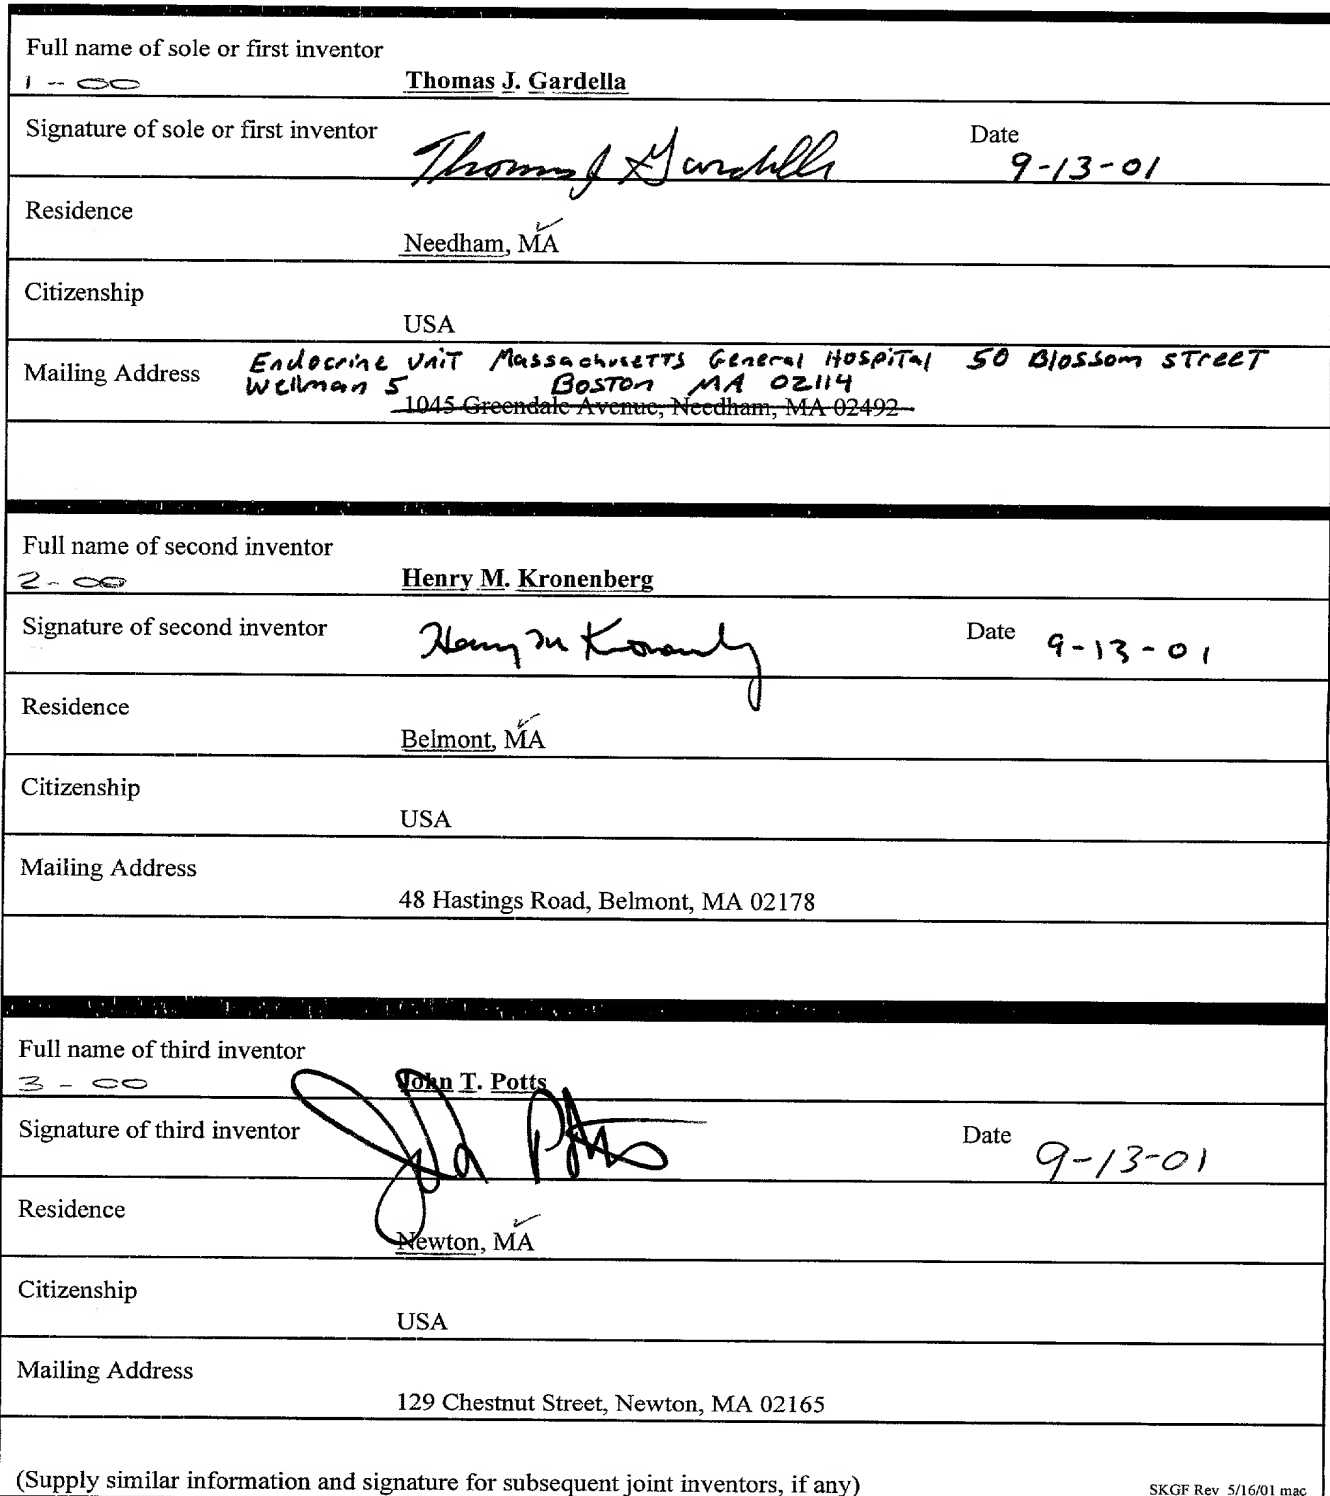 Full name of sole or first inventor
1 -- 00 Thomas J. Gardella
Signature of sole or first inventor Thomas J Gardella Date
9-13-01
Residence
Needham, MA
Citizenship
USA
Endocrine Unit Massachusetts General Hospital 50 Blossom Street
Mailing Address Wellman 5 Boston MA 02114
1045 Greendale Avenue, Needham, MA 02492
Full name of second inventor
2 - 00 Henry M. Kronenberg
Signature of second inventor Henry M Kronenberg Date 9-13-01
Residence
Belmont, MA
Citizenship
USA
Mailing Address
48 Hastings Road, Belmont, MA 02178
Full name of third inventor
3 - 00 John T. Potts
Signature of third inventor John Potts Date 9-13-01
Residence
Newton, MA
Citizenship
USA
Mailing Address
129 Chestnut Street, Newton, MA 02165
(Supply similar information and signature for subsequent joint inventors, if any) SKGF Rev 5/16/01 mac